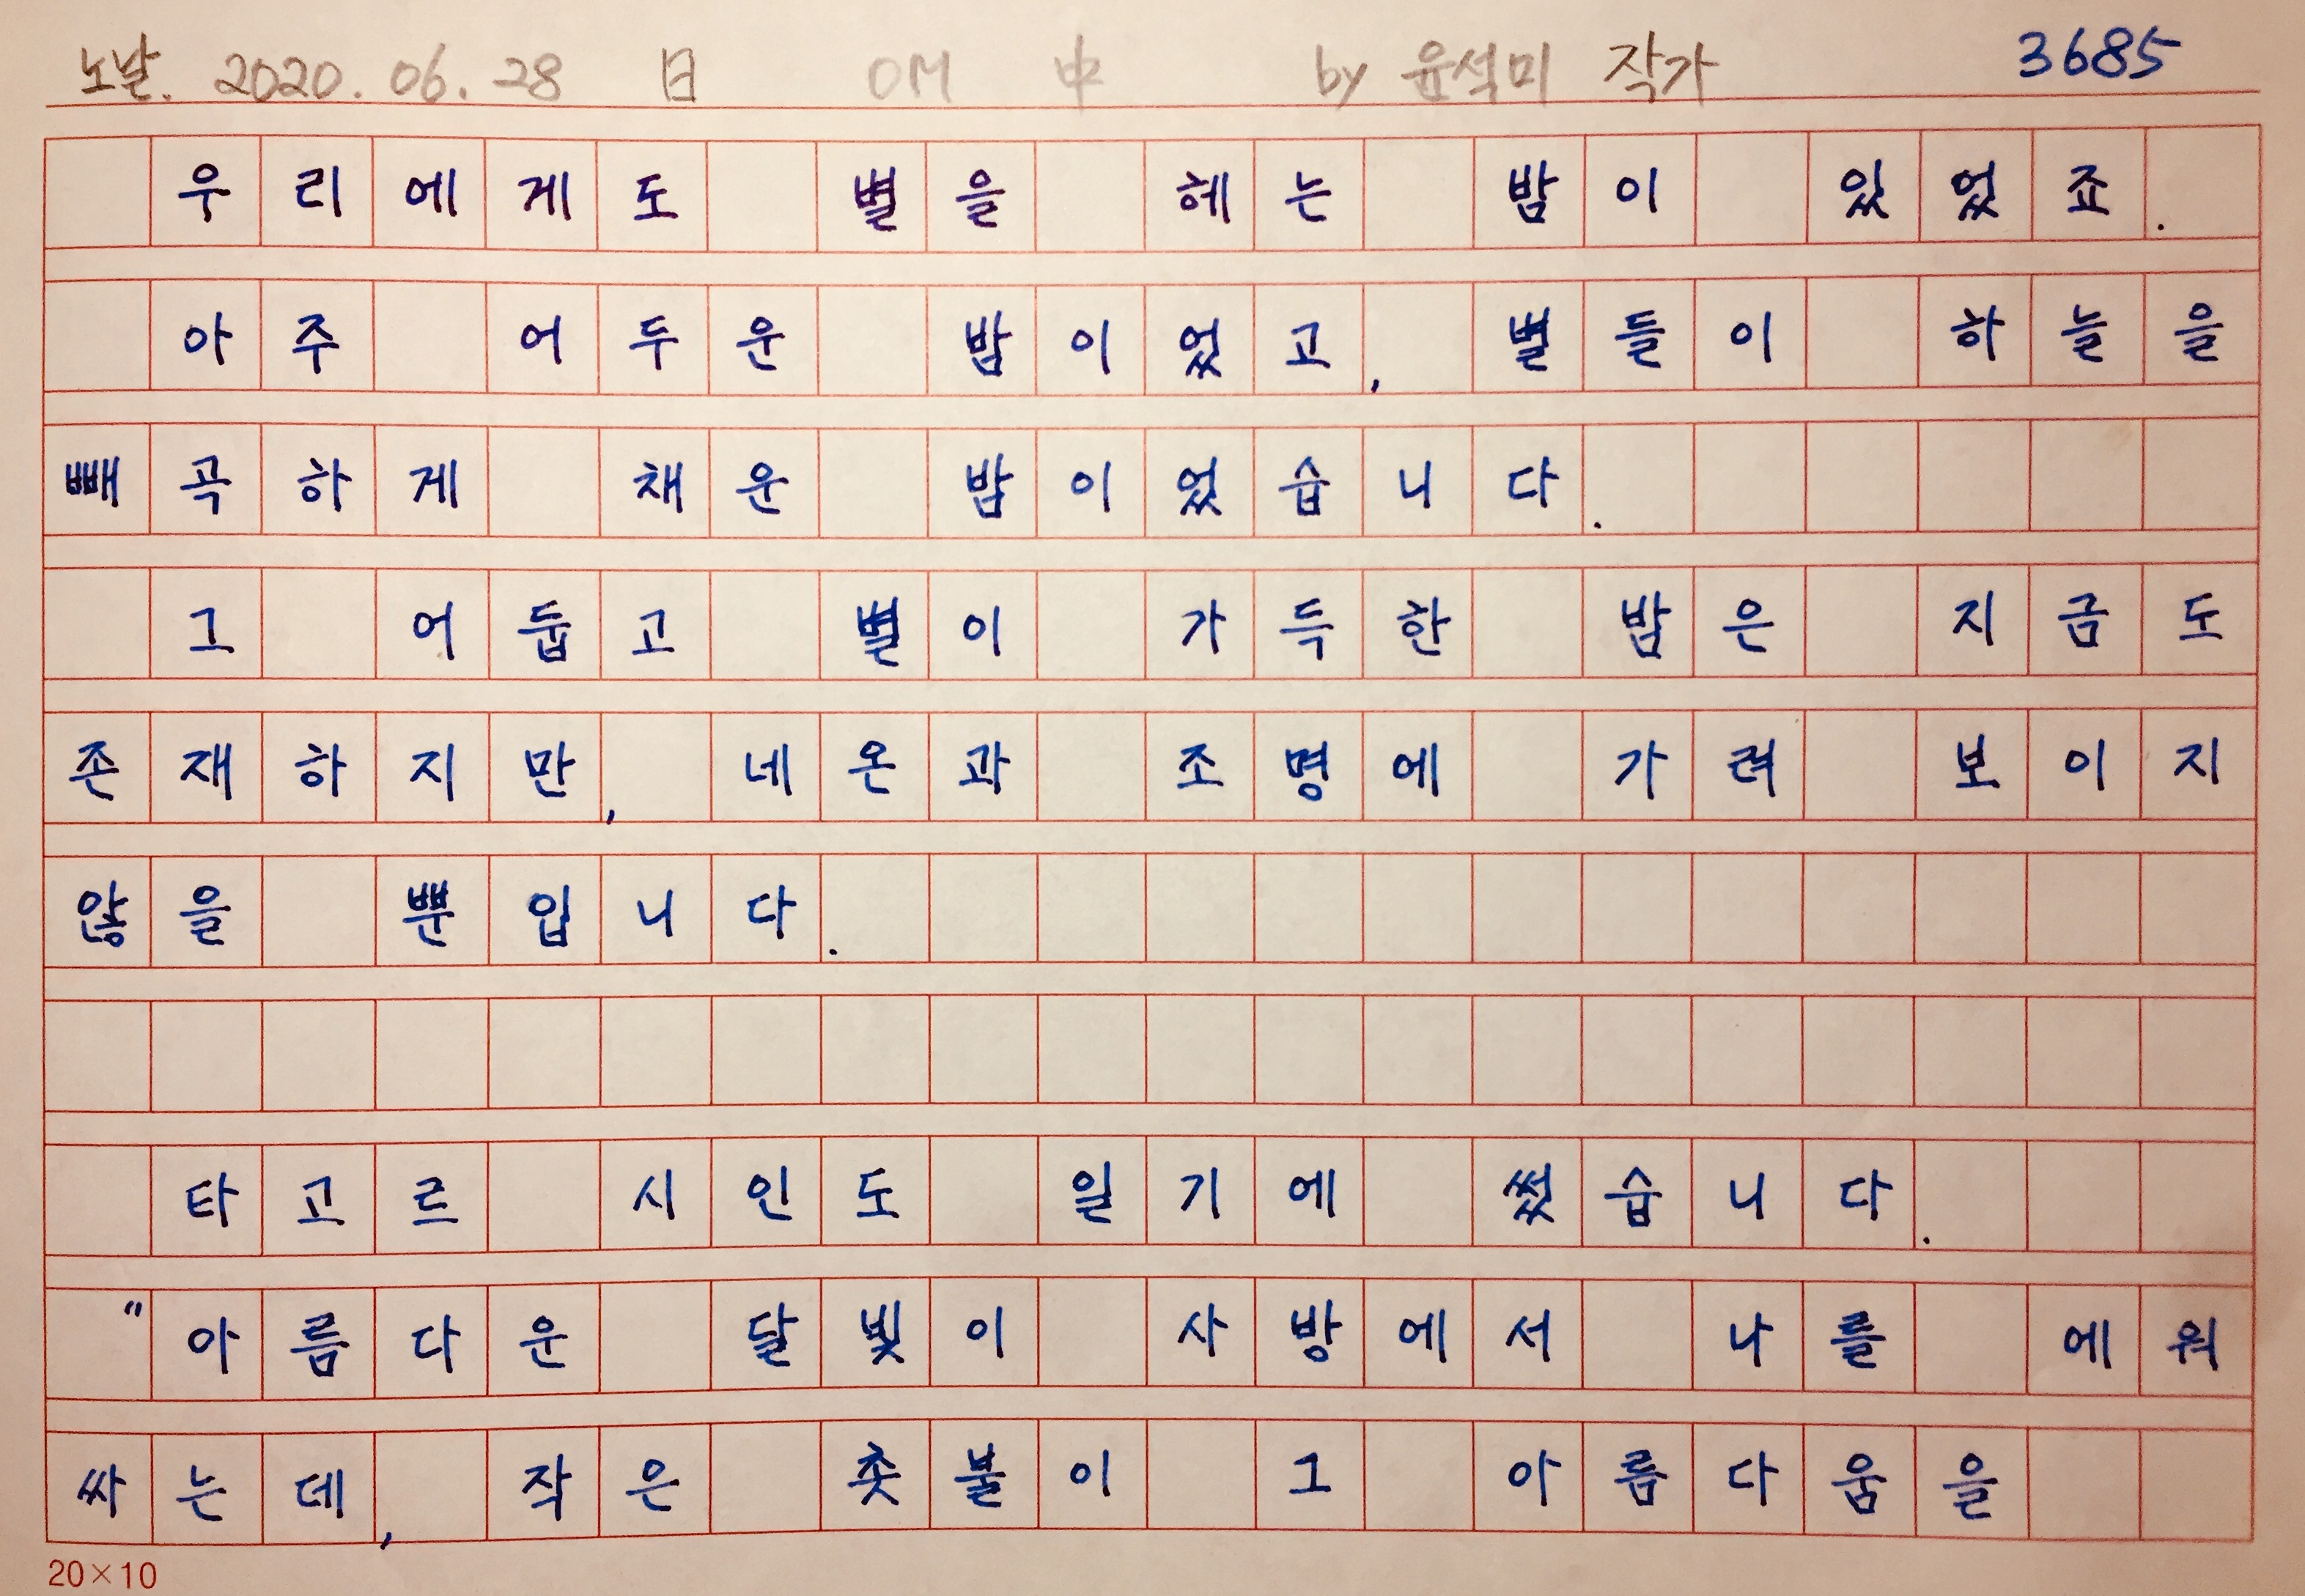 노날. 2020. 06. 28 日 OM 中 by 윤석미 작가 3685
우리에게도 별을 헤는 밤이 있었죠.
아주 어두운 밤이었고, 별들이 하늘을
빼곡하게 채운 밤이었습니다.
그 어둡고 별이 가득한 밤은 지금도
존재하지만, 네온과 조명에 가려 보이지
않을 뿐입니다.
타고르 시인도 일기에 썼습니다.
"아름다운 달빛이 사방에서 나를 에워
싸는데, 작은 촛불이 그 아름다움을
20×10